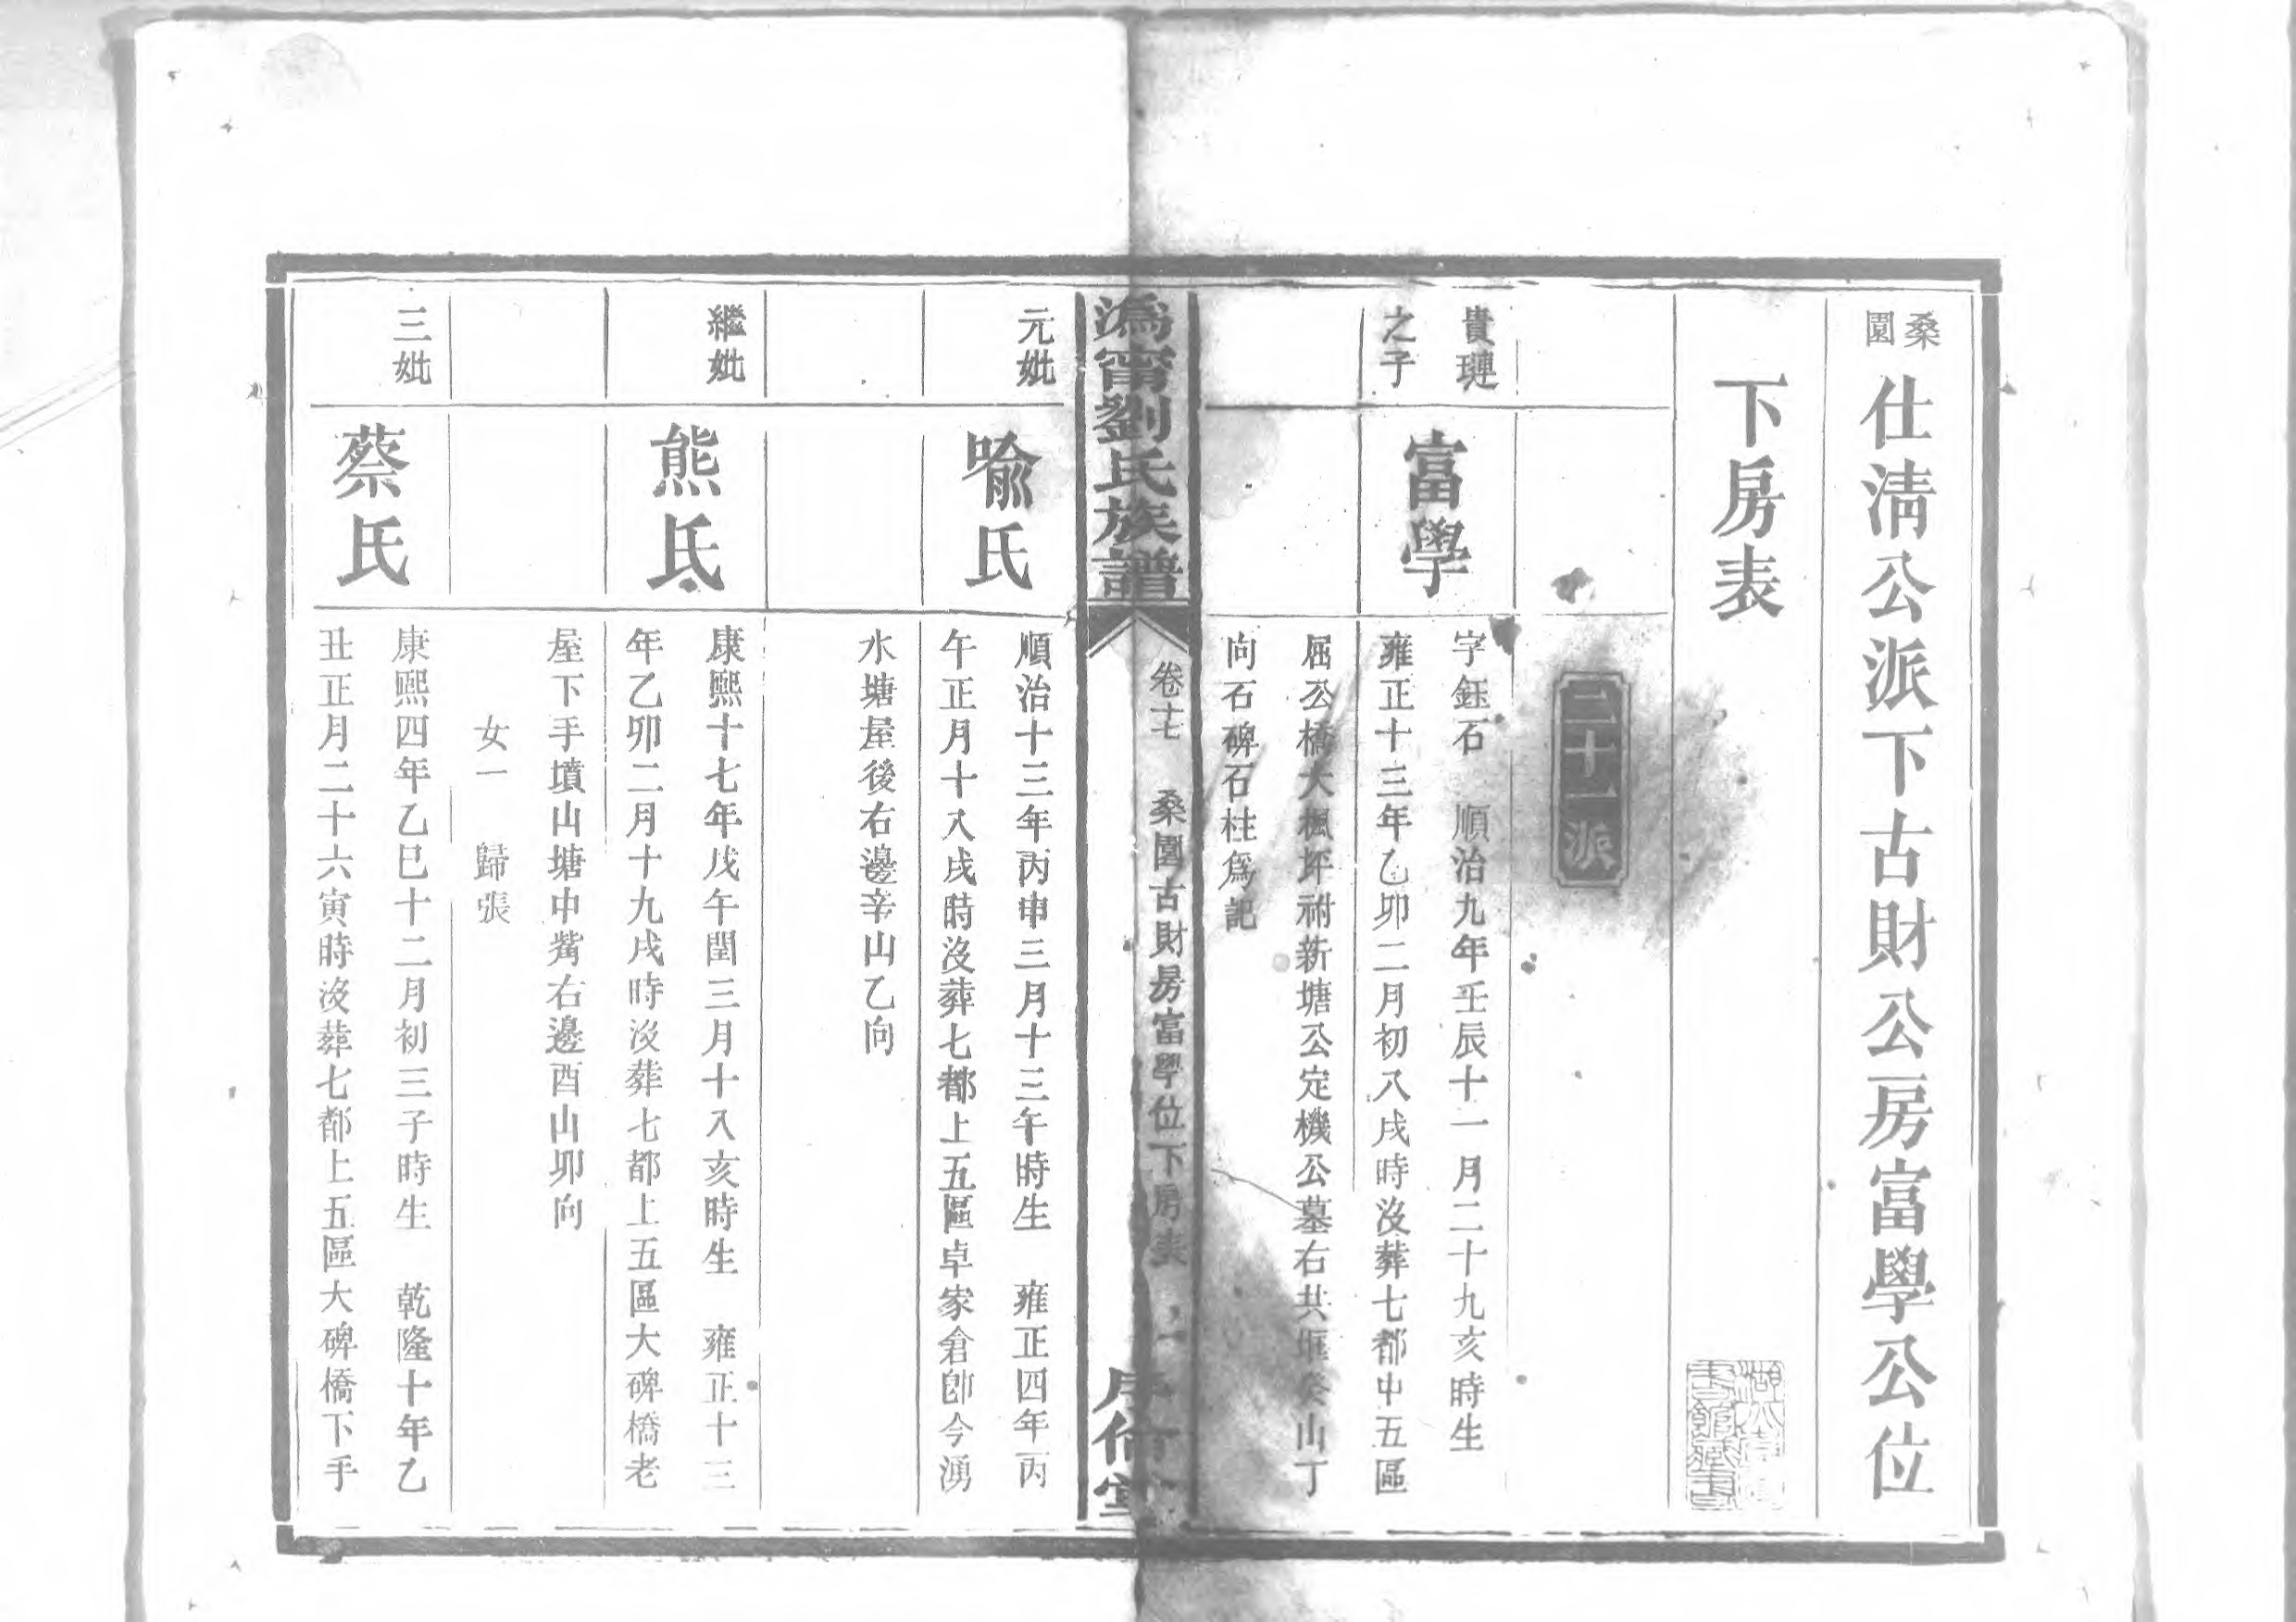 桑園
仕淸公派下古財公房富學公位
下房表
三十一派
貴璉
之子
富學
字鈺石　順治九年壬辰十一月二十九亥時生
雍正十三年乙卯二月初八戌時沒葬七都中五區
屈公橋大楓坪祔新塘公定機公墓右共堆癸山丁
向石碑石柱爲記
潙甯劉氏族譜
卷十七　桑園古財房富學位下房表　一
元妣
喻氏
順治十三年丙申三月十三午時生　雍正四年丙
午正月十八戌時沒葬七都上五區卓家倉卽今湧
水塘屋後右邊辛山乙向
繼妣
熊氏
康熙十七年戊午閏三月十八亥時生　雍正十三
年乙卯二月十九戌時沒葬七都上五區大碑橋老
屋下手墳山塘中觜右邊酉山卯向
女一　歸張
三妣
蔡氏
康熙四年乙巳十二月初三子時生　乾隆十年乙
丑正月二十六寅時沒葬七都上五區大碑橋下手